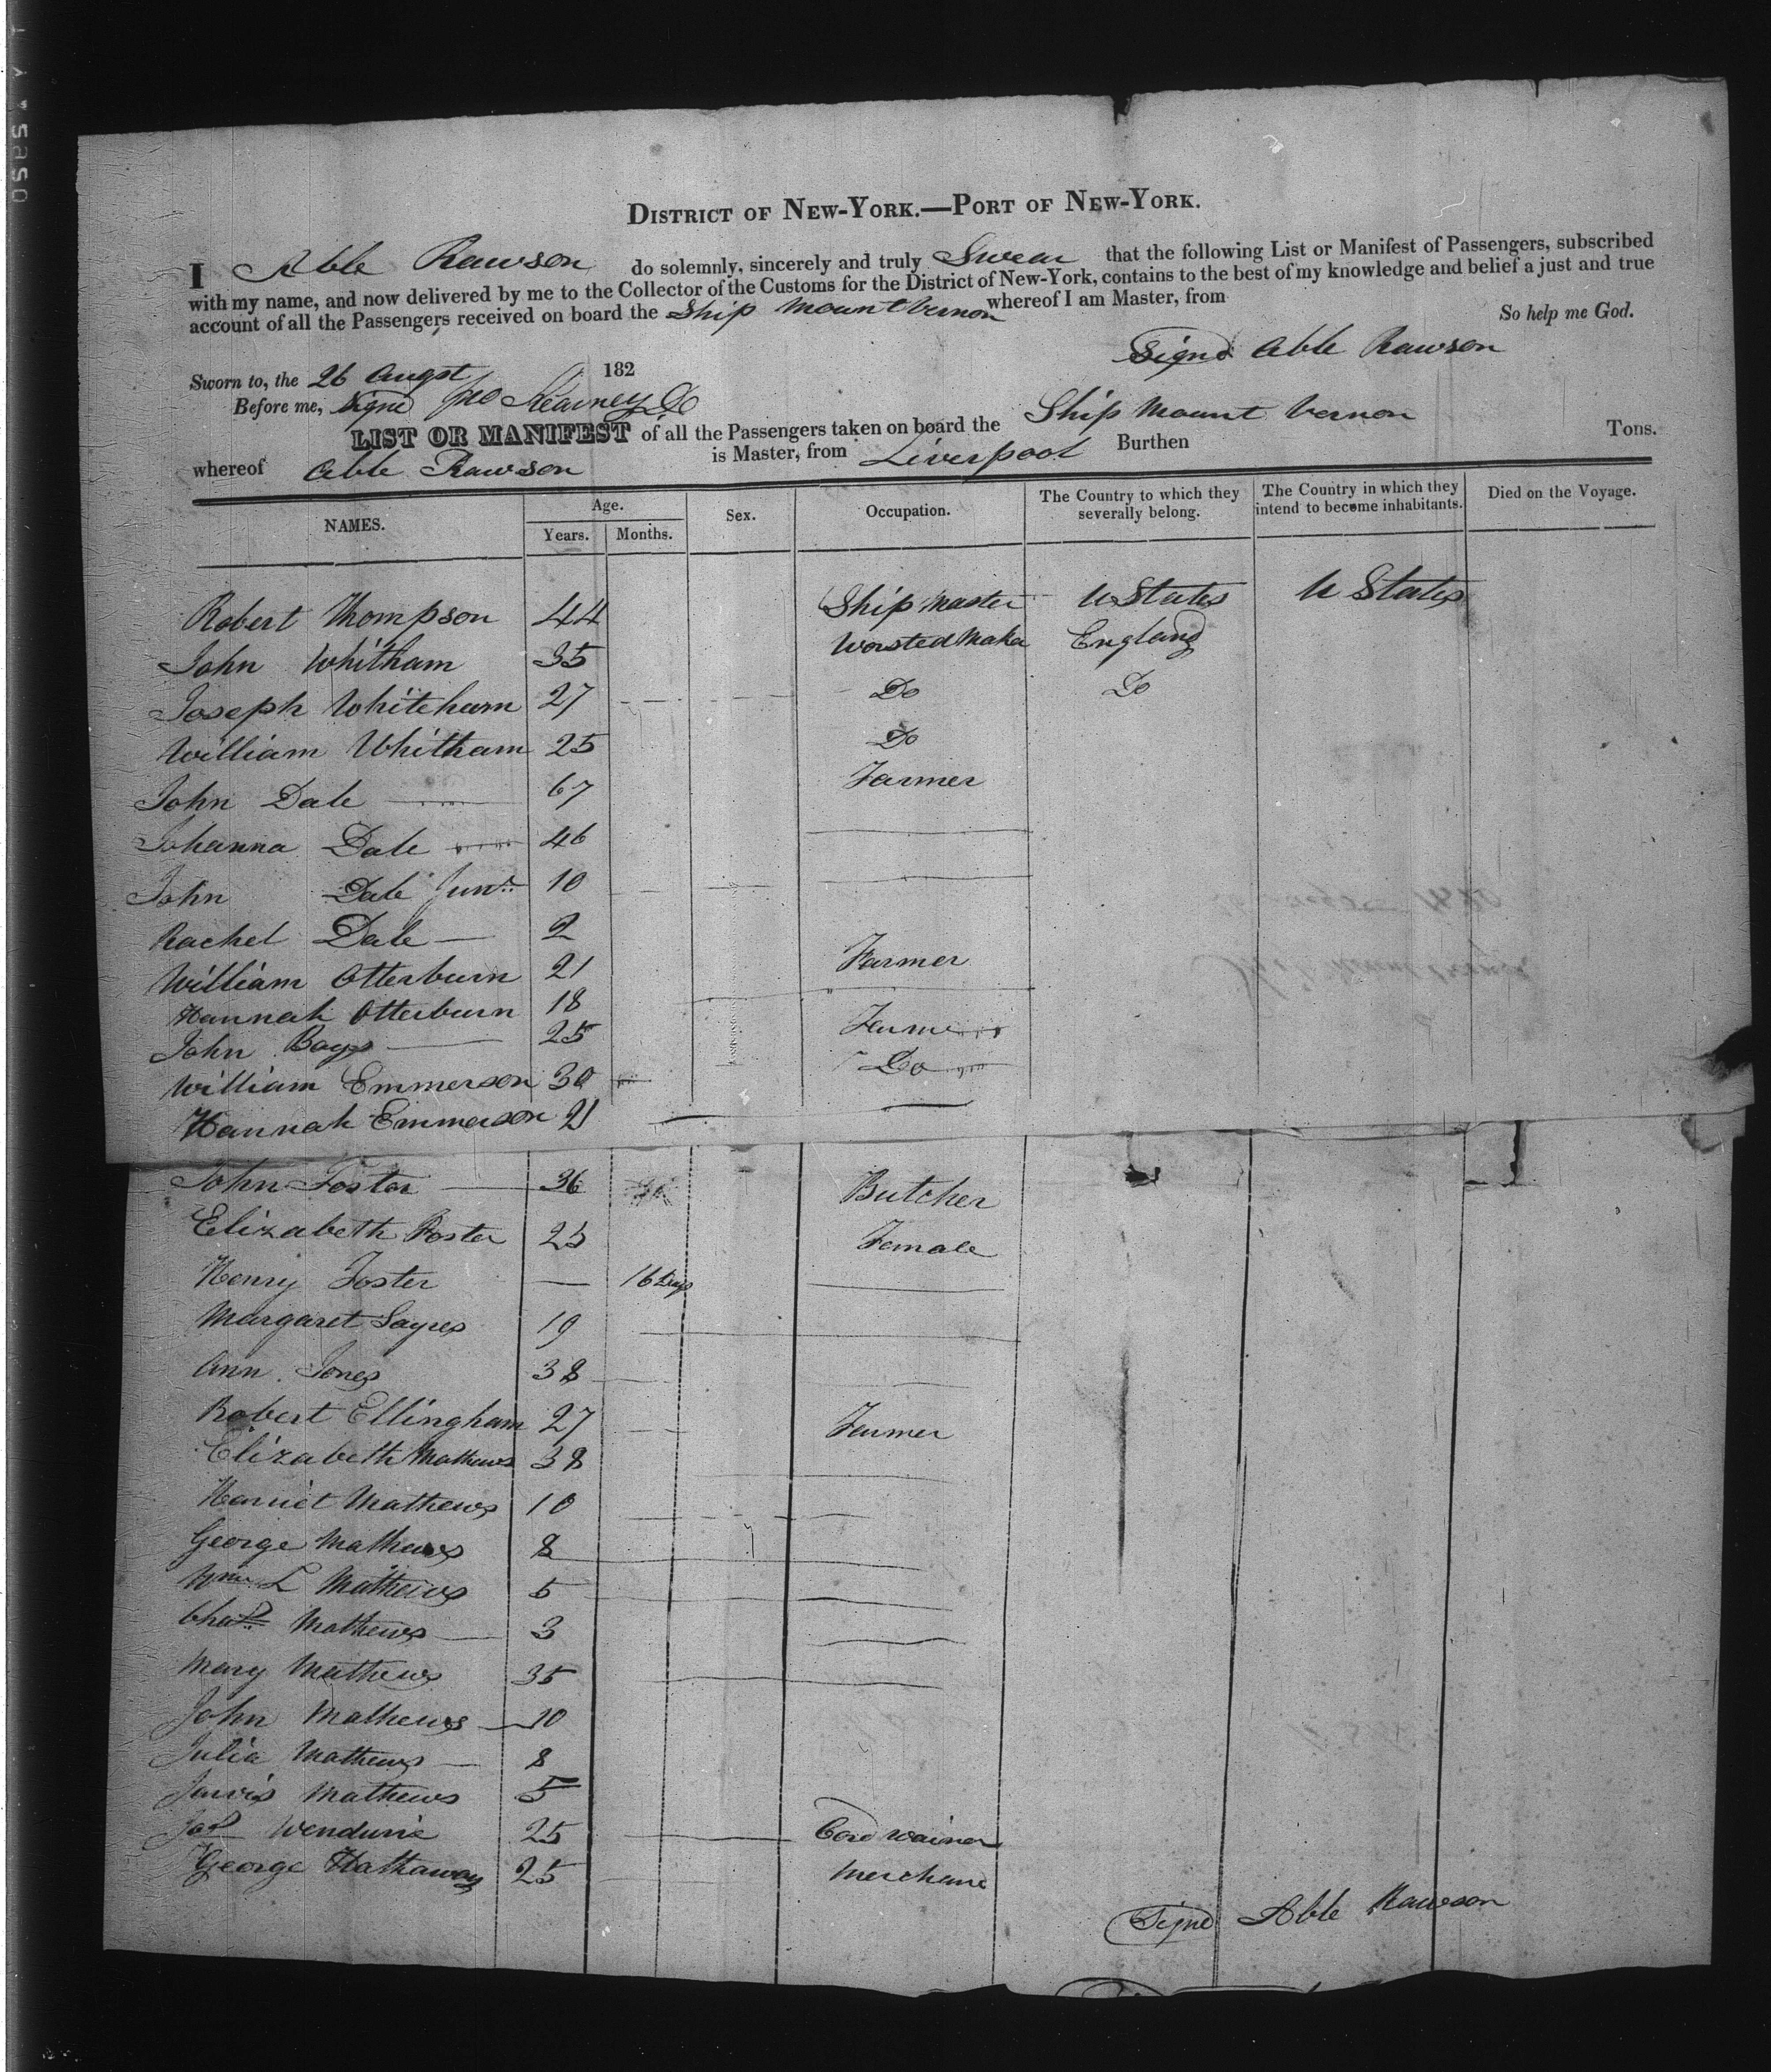 DISTRICT OF NEW-YORK.—PORT OF NEW-YORK.
I Able Rawson do solemnly, sincerely and truly Swear that the following List or Manifest of Passengers, subscribed
with my name, and now delivered by me to the Collector of the Customs for the District of New-York, contains to the best of my knowledge and belief a just and true
account of all the Passengers received on board the Ship Mount Vernon whereof I am Master, from
So help me God.
Signd Able Rawson
Sworn to, the 26 Augst 182
Before me, Signd Jno Kearney
LIST OR MANIFEST of all the Passengers taken on board the Ship Mount Vernon
whereof Able Rawson is Master, from Liverpool Burthen Tons.
NAMES. Age. Years. Months. Sex. Occupation. The Country to which they severally belong. The Country in which they intend to become inhabitants. Died on the Voyage.
Robert Thompson 44 Ship Master U States U States
John Whitham 35 Worsted Maker England
Joseph Whiteham 27 Do Do
William Whitham 25 Do
John Dale 67 Farmer
Johanna Dale 46
John Dale Junr. 10
Rachel Dale 2
William Otterburn 21 Farmer
Hannah Otterburn 18
John Boys 25 Farmer
William Emmerson 30 Do
Hannah Emmerson 21
John Foster 36 Butcher
Elizabeth Foster 25 Female
Henry Foster — 16 Days
Margaret Sayres 19
Ann Jones 38
Robert Ellingham 27 Farmer
Elizabeth Mathews 38
Harriet Mathews 10
George Mathews 8
Wm L Mathews 5
Chas. Mathews 3
Mary Mathews 35
John Mathews 10
Julia Mathews 8
Jarvis Mathews 5
Jas 25 Cordwainer
George Hathaway 25 Merchant
Signd Able Rawson